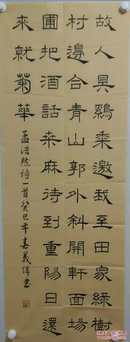 故人具鷄黍邀我至田家綠樹
村邊合青山郭外斜開軒面場
圃把酒話桑麻待到重陽日還
來就菊華
孟浩然詩一首癸巳年春義偉書